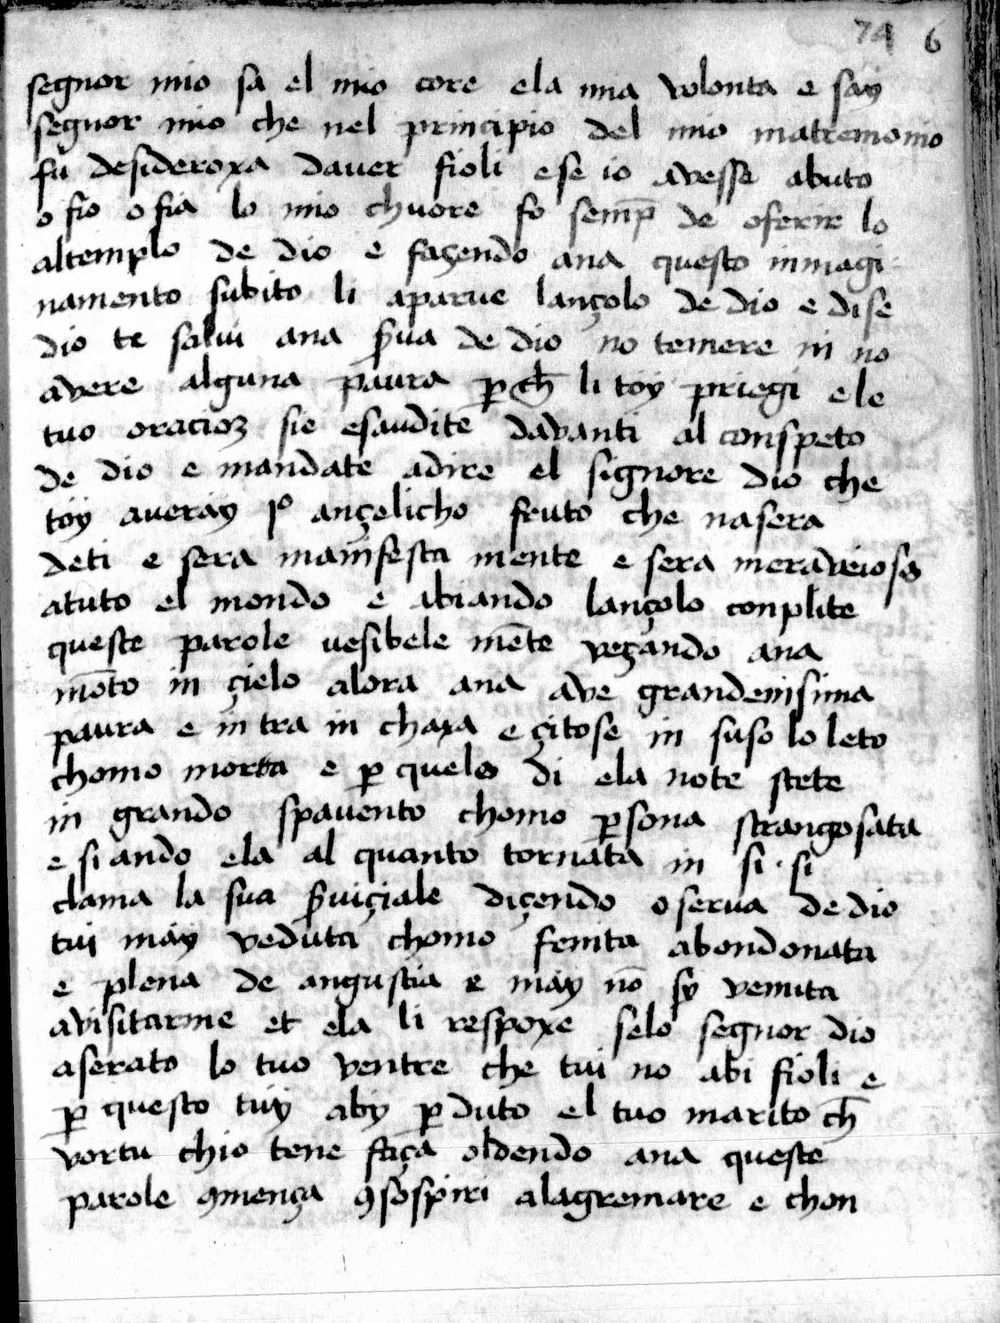 74 6
segnor mio sa el mio core ela mia volonta e say
segnor mio che nel principio del mio matremonio
fu desideroxa daver fioli e se io avesse abuto
o fio o fia lo mio chuore fo semp̄ de oferir lo
altemplo de dio e façendo ana questo inmagi
namento subito li aparue lançolo de dio e dise
dio te salvi ana s̄ua de dio no temere in no
avere alguna paura p̱ch̄ li toy priegi e le
tuo oracioꝫ sie esaudite davanti al conspeto
de dio e mandate adire el signore dio che
toy averay io ançelicho fruto che nasera
deti e sera manifesta mente e sera meraveiosa
atuto el mondo e abiando lançolo conplite
queste parole vesibele mēte veçando ana
mōto in çielo alora ana ave grandenisima
paura e intra in chaxa e çitose in suso lo leto
chomo morta e p̱ quelo di ela note stete
in grando spavento chomo p̱sona strangosata
e siando ela al quanto tornata in si · si
clama la sua s̄uiçiale diçendo o serva de dio
tui may veduta chomo femita abondonata
e plena de angustia e may nō sy venuta
avisitarme et ela li respoxe selo segnor dio
aserato lo tuo ventre che tui no abi fioli e
p̱ questo tuy aby p̱duto el tuo marito ch̄
vortu chio tene faça oldendo ana queste
parole ꝯmença ꝯsospiri alagremare e chon